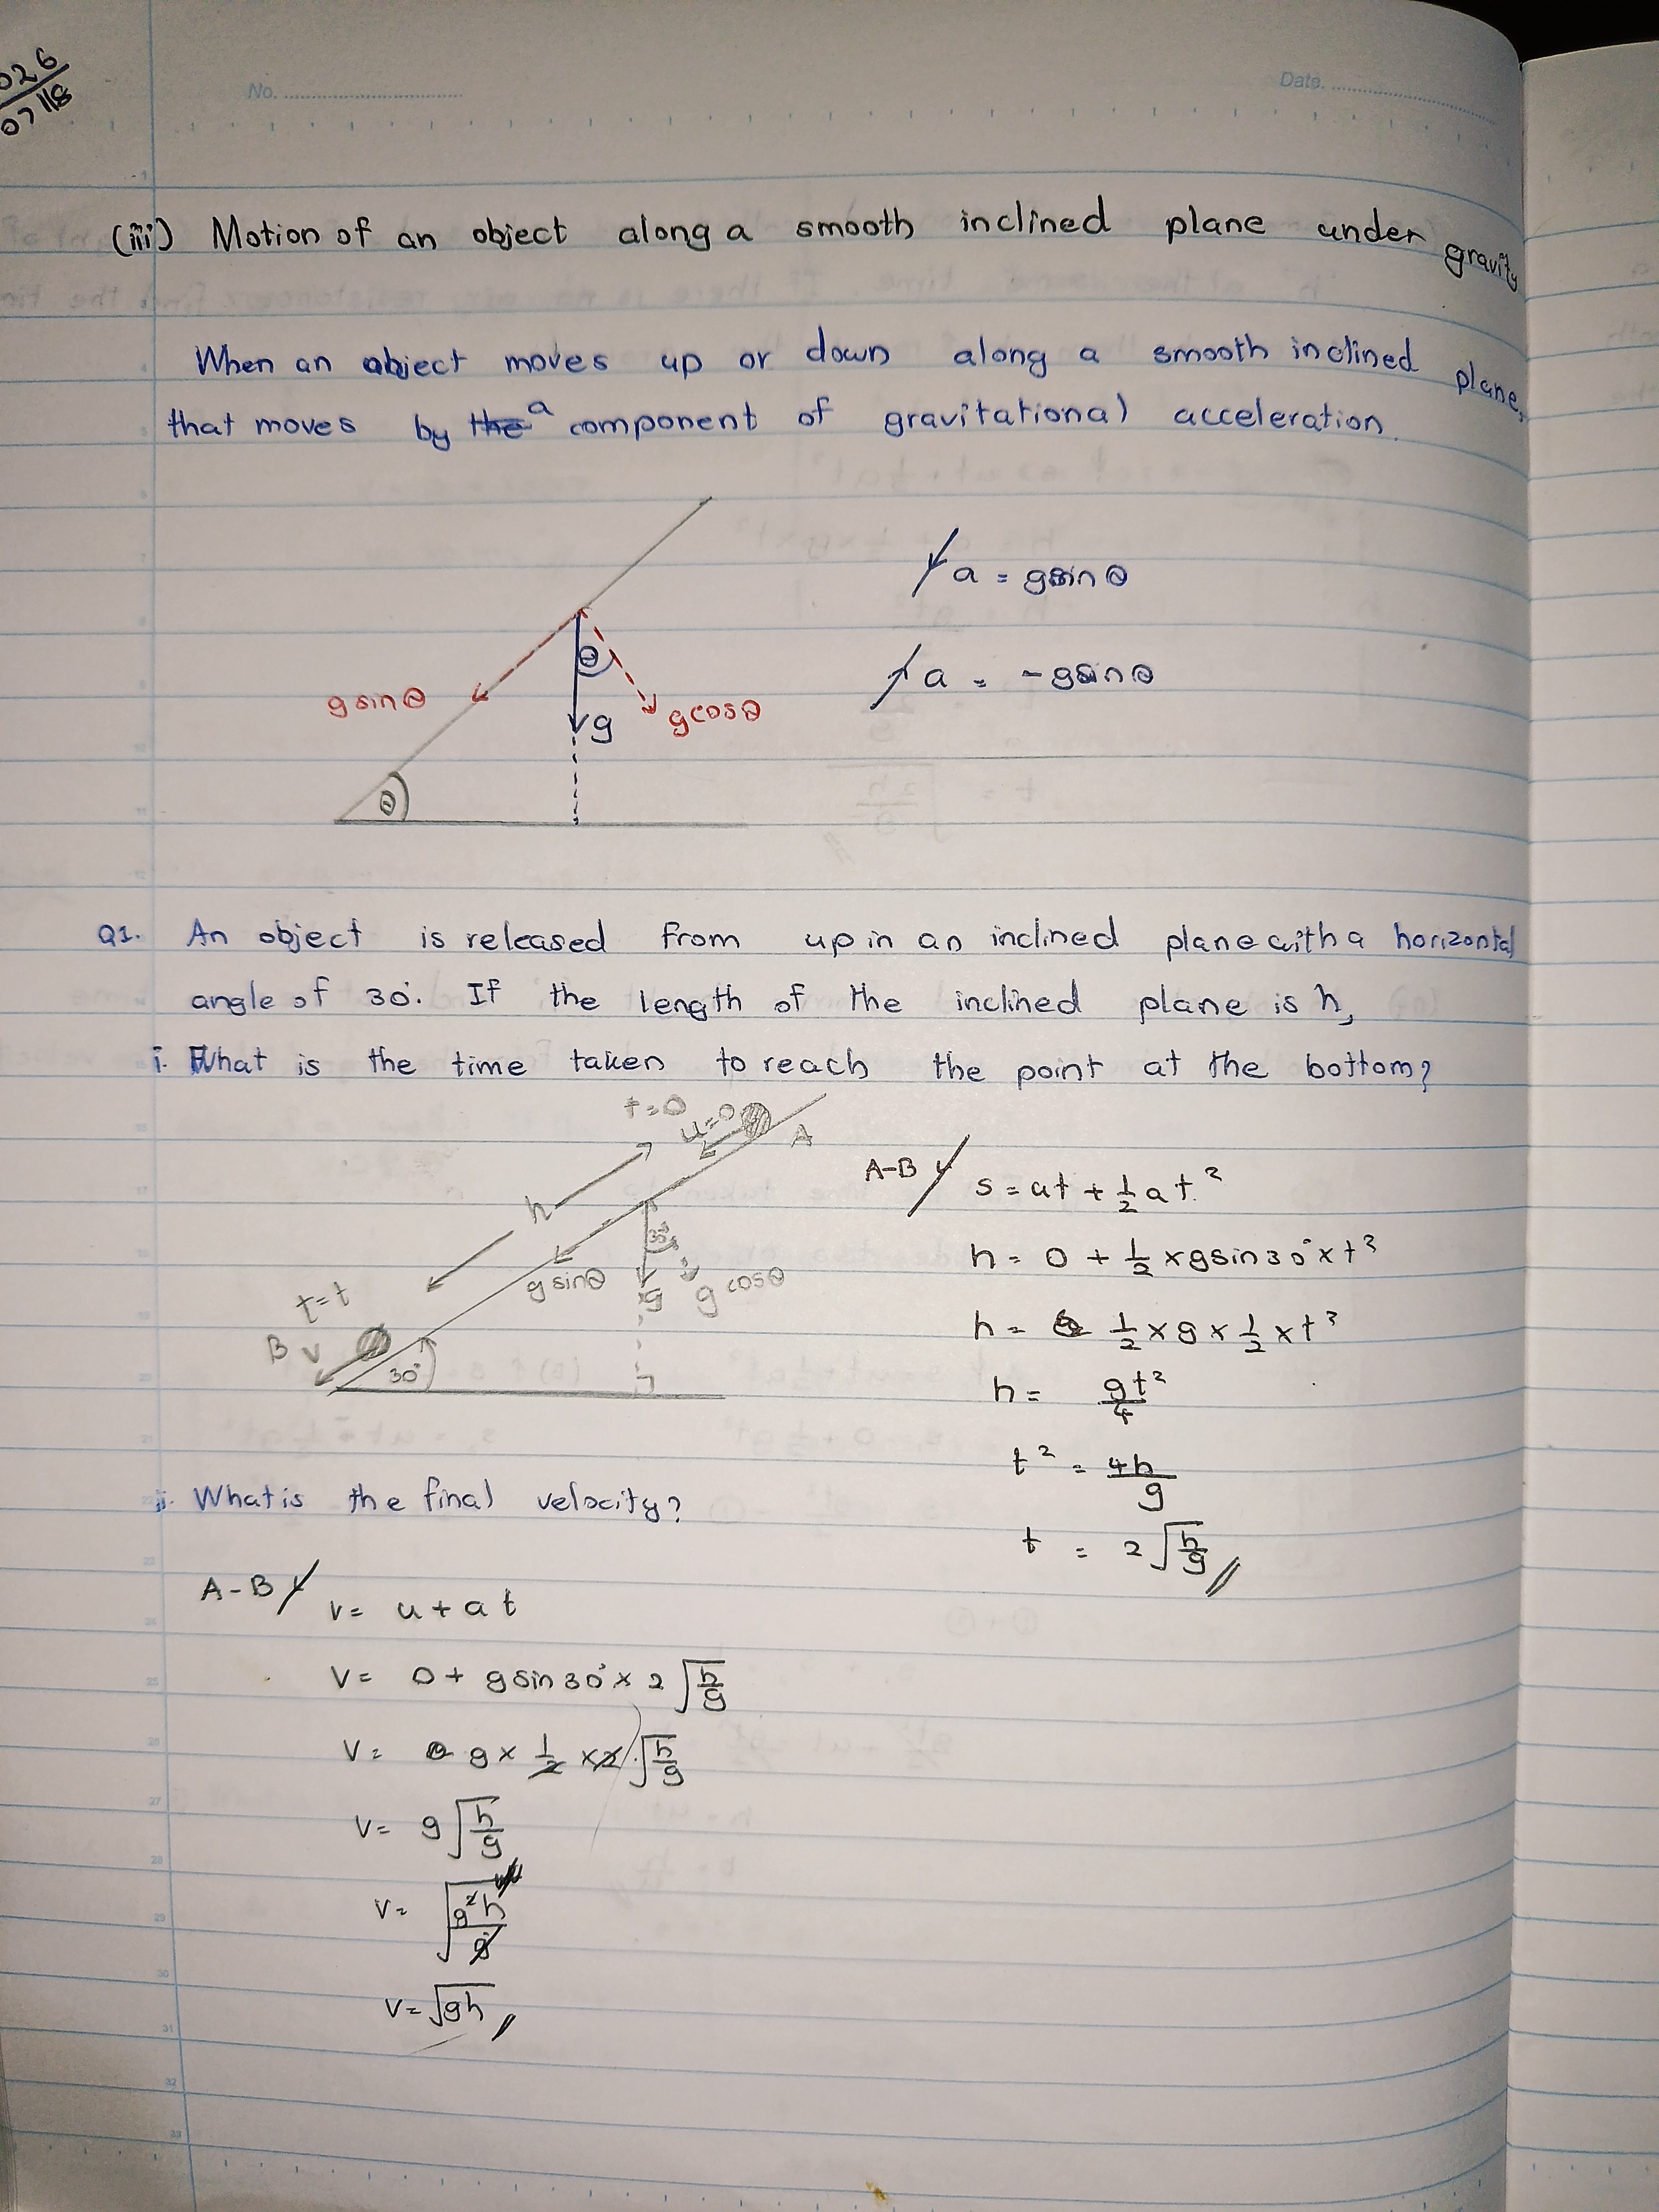 026
07/18
No.
Date.
(iii) Motion of an object along a smooth inclined plane under gravity
When an object moves up or down along a smooth inclined plane,
that moves by the a component of gravitational acceleration.
a = gsinθ
θ
a = -gsinθ
gsinθ
g
gcosθ
θ
Q1. An object is released from up in an inclined plane with a horizontal
angle of 30°. If the length of the inclined plane is h,
i. What is the time taken to reach the point at the bottom?
t=0
u=0
A
A-B s = ut + 1/2 at²
h
30°
h = 0 + 1/2 × gsin30° × t²
gsinθ
g
gcosθ
t=t
h = 1/2 × g × 1/2 × t²
B v
30°
h = gt²/4
t² = 4h/g
ii. What is the final velocity?
t = 2√(h/g)
A-B v = u + at
v = 0 + gsin30° × 2√(h/g)
v = g × 1/2 × 2 . √(h/g)
v = g√(h/g)
v = √(g²h/g)
v = √gh